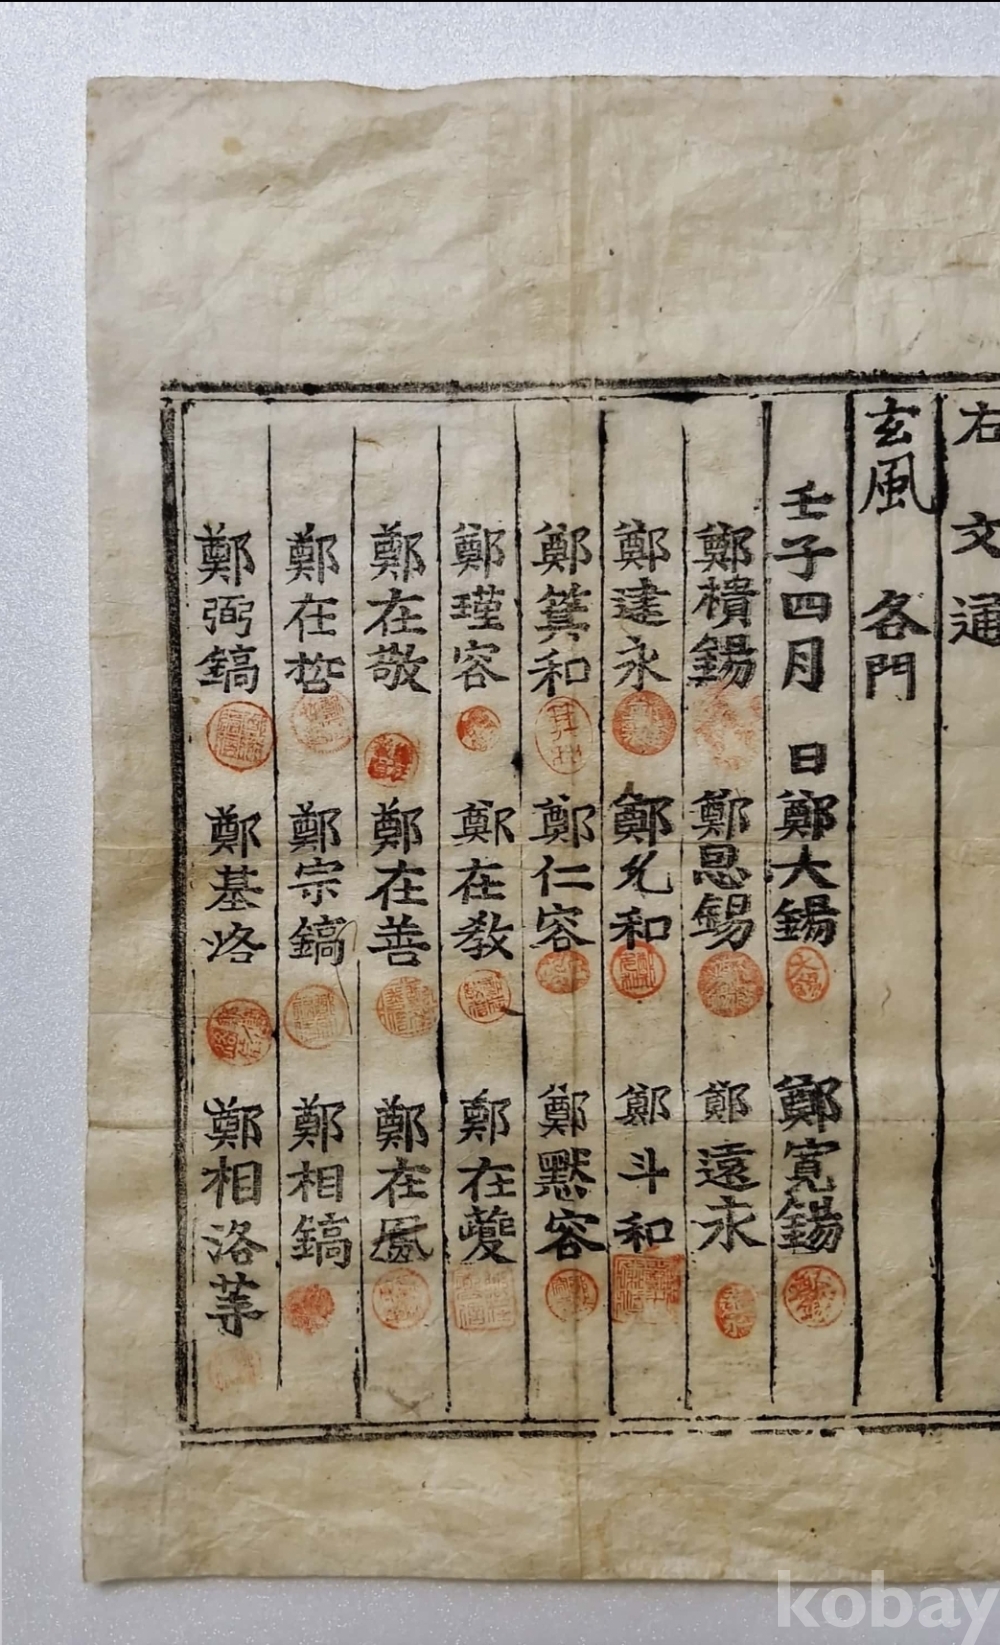 右 文 通
玄風 各門
壬子四月 日 鄭大錫 鄭寬錫
鄭樻錫 鄭思錫 鄭遠永
鄭建永 鄭允和 鄭斗和
鄭箕和 鄭仁容 鄭黙容
鄭瑾容 鄭在教 鄭在夔
鄭在敬 鄭在善 鄭在
鄭在哲 鄭宗鎬 鄭相鎬
鄭弼鎬 鄭基洛 鄭相洛等
kobay